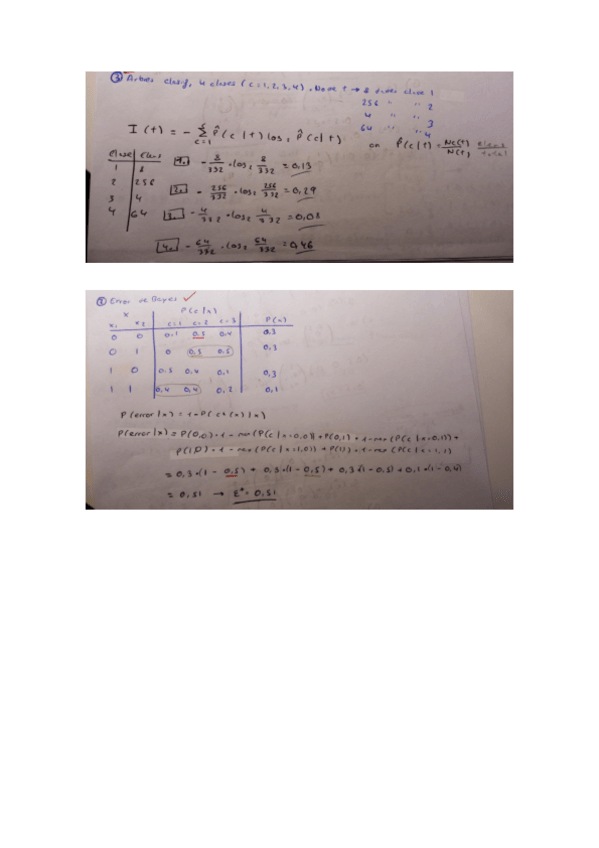 ③ Árboles clasif, 4 clases (c=1,2,3,4). Nodo t → 8 datos clase 1
256 " " 2
4 " " 3
64 " " 4
I(t) = - Σ P̂(c|t) log₂ P̂(c|t)
c=1
on P̂(c|t) = Nc(t)/N(t)
Clase
1 8
2 256
3 4
4 64
1. - 8/332 · log₂ 8/332 = 0,13
2. - 256/332 · log₂ 256/332 = 0,29
3. - 4/332 · log₂ 4/332 = 0,08
4. - 64/332 · log₂ 64/332 = 0,46
② Error de Bayes ✓
x P(c|x)
x₁ x₂ c=1 c=2 c=3 P(x)
0 0 0.1 0.5 0.4 0.3
0 1 0 0.5 0.5 0.3
1 0 0.5 0.4 0.1 0.3
1 1 0.4 0.4 0.2 0.1
P(error|x) = 1 - P(c*(x)|x)
P(error|x) = P(0,0) · 1 - max(P(c|x=0,0)) + P(0,1) · 1 - max(P(c|x=0,1)) +
P(1,0) · 1 - max(P(c|x=1,0)) + P(1,1) · 1 - max(P(c|x=1,1)
= 0,3 · (1 - 0,5) + 0,3 · (1 - 0,5) + 0,3 · (1 - 0,5) + 0,1 · (1 - 0,4)
= 0,51 → E* = 0,51